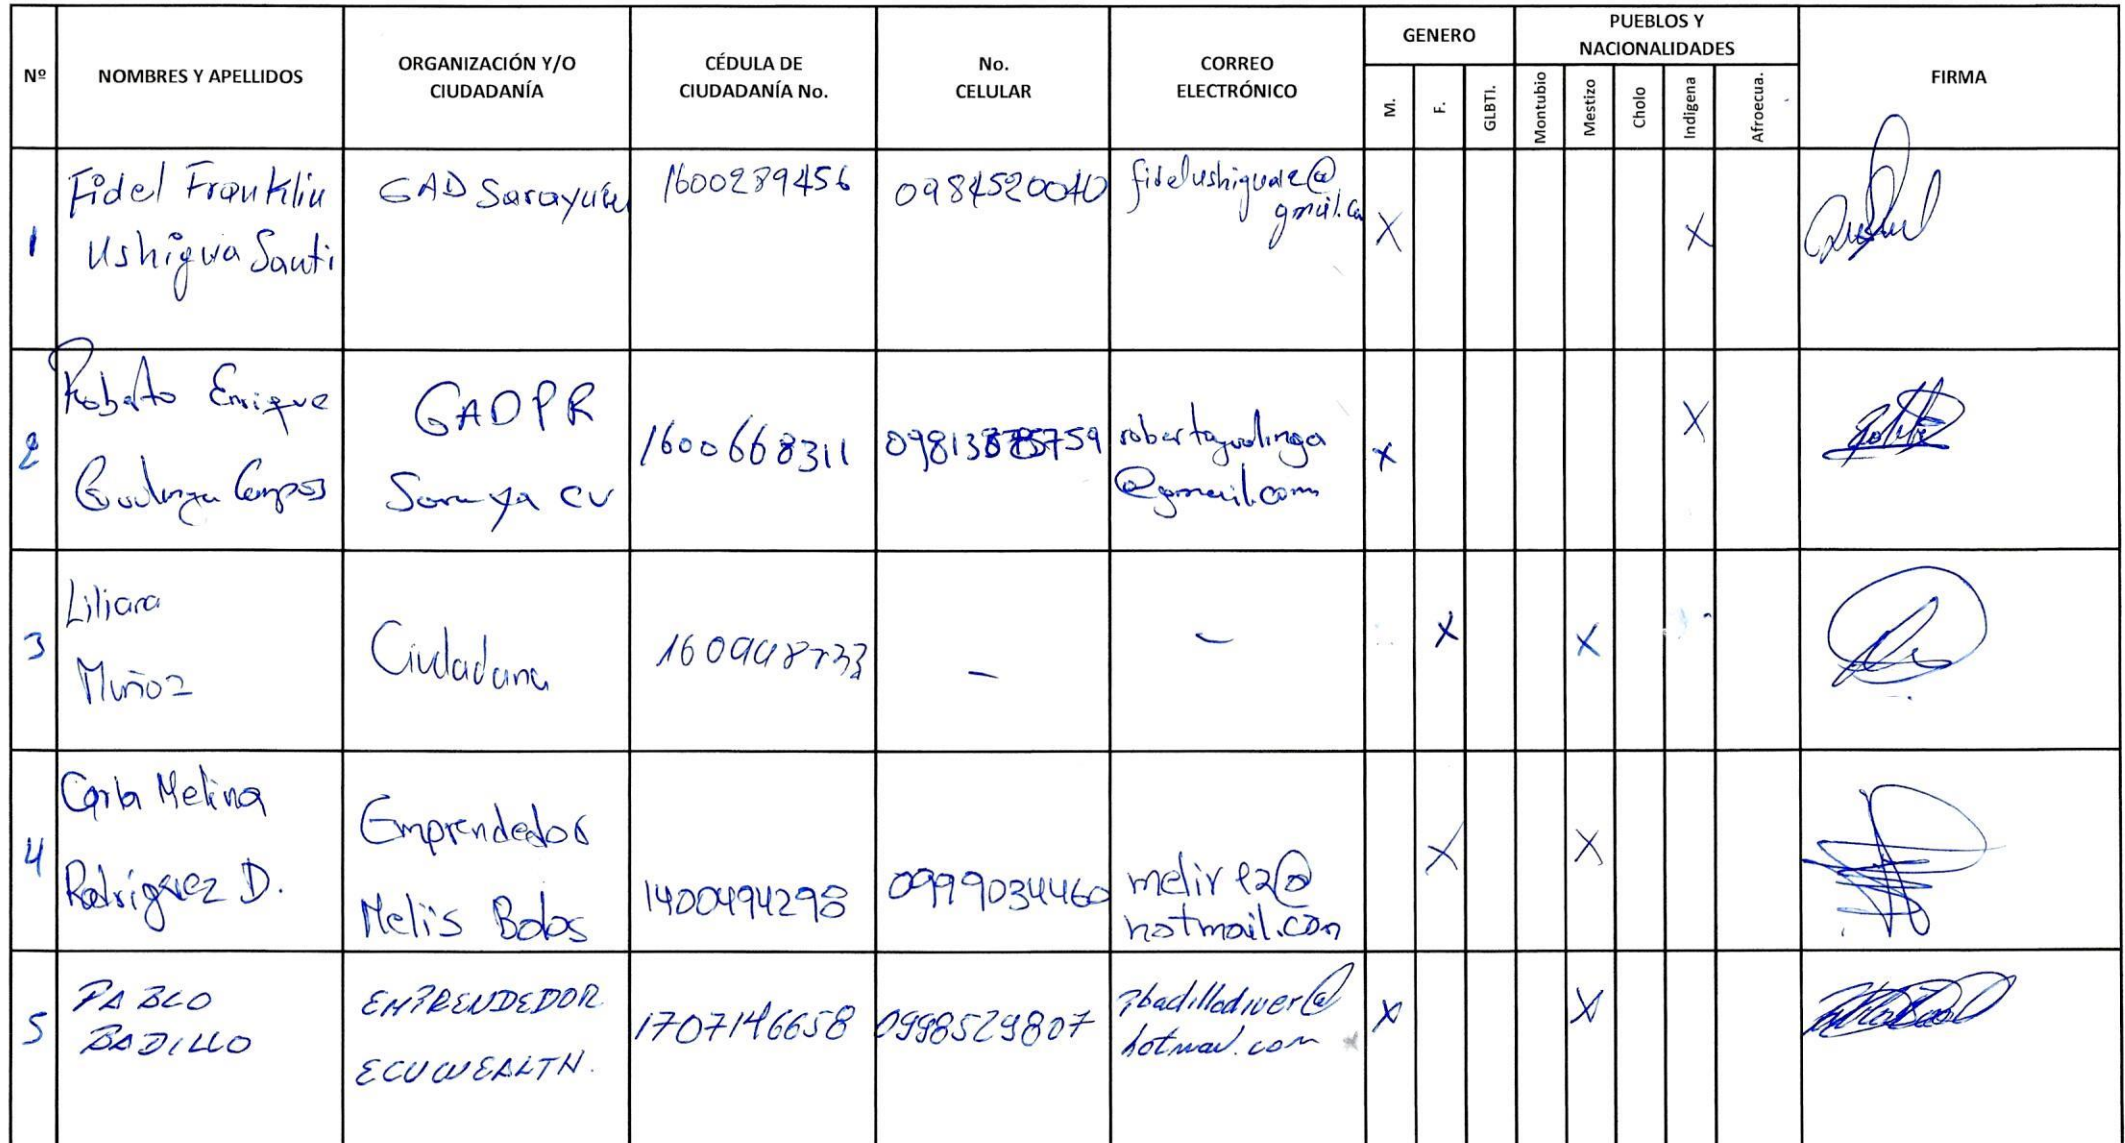 Nº
NOMBRES Y APELLIDOS
ORGANIZACIÓN Y/O
CIUDADANÍA
CÉDULA DE
CIUDADANÍA No.
No.
CELULAR
CORREO
ELECTRÓNICO
GENERO
M.
F.
GLBTI.
PUEBLOS Y
NACIONALIDADES
Montubio
Mestizo
Cholo
Indigena
Afroecua.
FIRMA
1
Fidel Franklin
Ushigua Santi
GAD Sarayuku
1600289456
0984520040
fidelushigua@
gmail.co
X
X
2
Roberto Enrique
Gualinga Campos
GADPR
Sarayacu
1600668311
robertogualinga
@gmail.com
X
X
3
Liliana
Muñoz
Ciudadana
–
–
X
X
4
Carla Melina
Rodríguez D.
Emprendedor
Melis Bolos
1400494298
0999034460
melirez@
hotmail.com
X
X
5
PABLO
BADILLO
EMPRENDEDOR
ECUWEALTH.
1707146658
0998529807
pbadillodiver@
hotmail.com
X
X